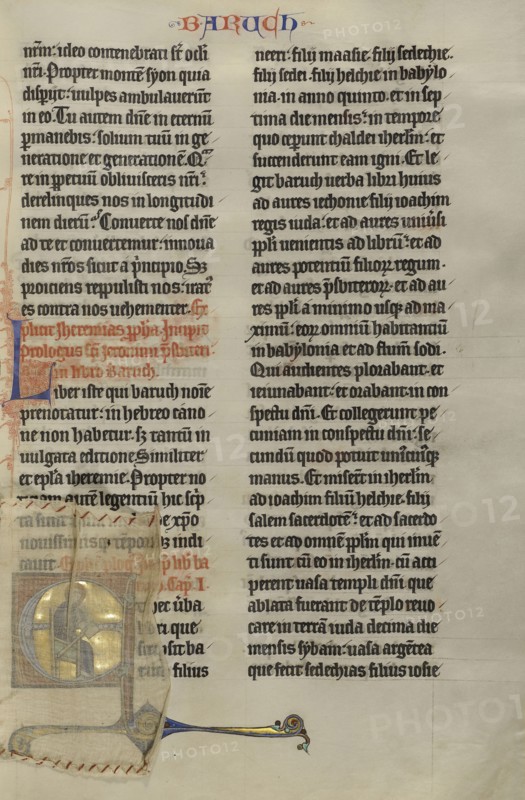 BARUCH
nr̄m: ideo contenebrati st̄ ocl̄i
nr̄i. Propter montē syon quia
disp̄ijt: uulpes ambulauerūt
in eo. Tu autem dn̄e in eternū
p̄manebis: solium tuū in ge
neratione et generationē. Qr̄
re in ꝑpetuū obliuisceris nr̄i:
derelinques nos in longitudi
nem dierū: Conuerte nos dn̄e
ad te et conuertemur: innoua
dies nr̄os sicut a p̄ncipio. Sꝫ
proiciens reppulisti nos: irat᷒
es contra nos uehementer. Ex
plicit Iheremias ꝓph̄a. Incipit
prologus
in libro Baruch.
Liber iste qui baruch noīe
prenotatur: in hebreo cāno
ne non habetur: sꝫ tantū in
uulgata editione. Similiter
et epl̄a iheremie. Propter no
autē legentiū hic sc̄p
ta sunt xp̄o
nouissimisqꝫ tēporibꝫ indi
cant.
Cap. I.
hec ūba
libri que
sit ba
filius
neeri: filij maasie. filij sedechie.
filij sedei. filij helchie in babylo
nia. in anno quinto. et in sep
tima die mensis: in tempore
quo ceperunt chaldei iherl̄m: et
succenderunt eam igni. Et le
git baruch uerba libri huius
ad aures iechonie filij ioachim
regis iuda: et ad aures uniūsi
ppl̄i uenientis ad librū: et ad
aures potentiū filioꝝ regum.
et ad aures p̄sbiteroꝝ: et ad au
res ppl̄i a minimo usqꝫ ad ma
ximū: eoꝝ omniū habitantiū
in babylonia et ad flum̄ sodi.
Qui audientes plorabant: et
ieiunabant: et orabant in con
spectu dn̄i. Et collegerunt pe
cuniam in conspectu dn̄i: se
cundū quod potuit uniˢcuiˢqꝫ
manus. Et miser̄t in iherl̄m
ad ioachim filiū helchie filij
salem sacerdotē: et ad sacerdo
tes et ad omnē ppl̄m qui inuē
ti sunt cū eo in iherl̄m: cū acci
perent uasa templi dn̄i que
ablata fuerant de tēplo reuo
care in terrā iuda decima die
mensis syban: uasa argētea
que fecit sedechias filius iosie